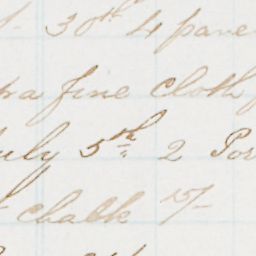 30th 4 pane
ra fine cloth
uly 5th 2 Por
chalk 15/-